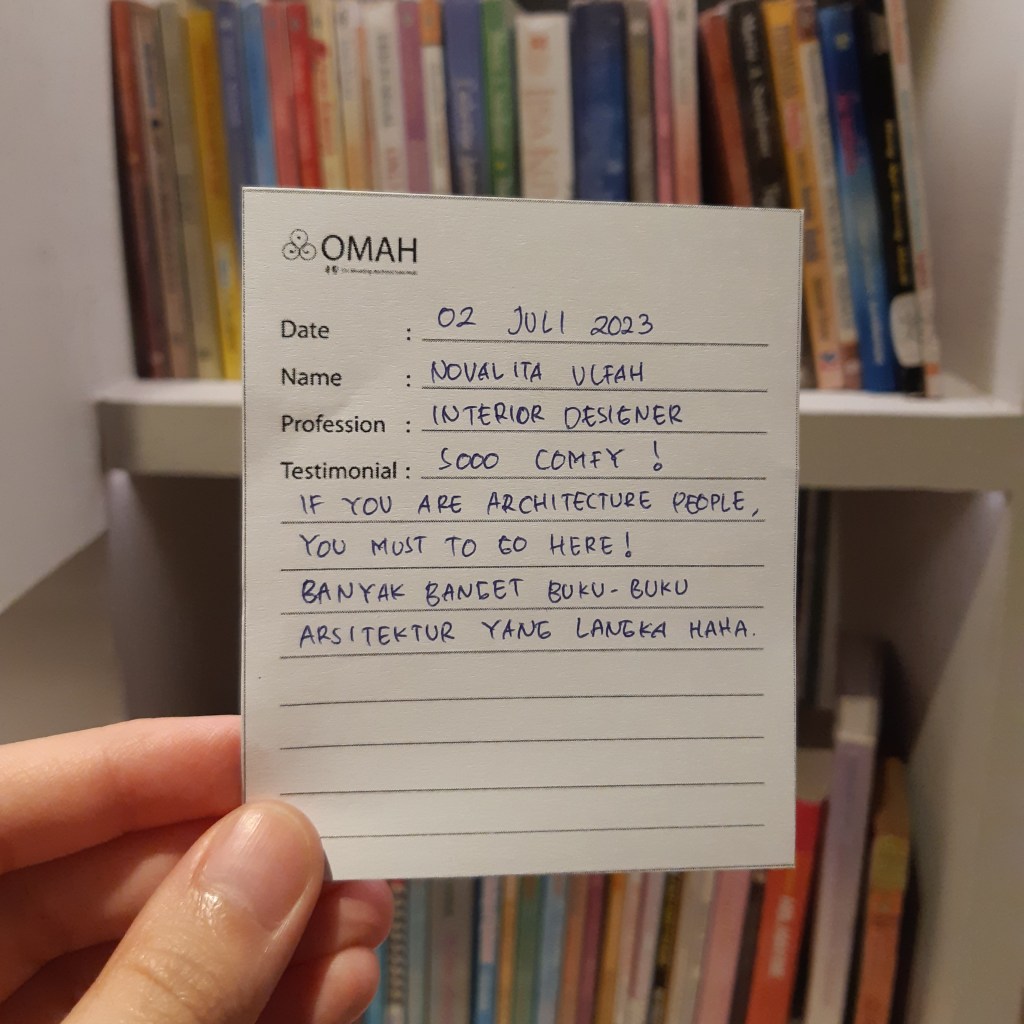 OMAH
Date : 02 JULI 2023
Name : NOVALITA ULFAH
Profession : INTERIOR DESIGNER
Testimonial : SOOO COMFY !
IF YOU ARE ARCHITECTURE PEOPLE,
YOU MUST TO GO HERE!
BANYAK BANGET BUKU-BUKU
ARSITEKTUR YANG LANGKA HAHA.